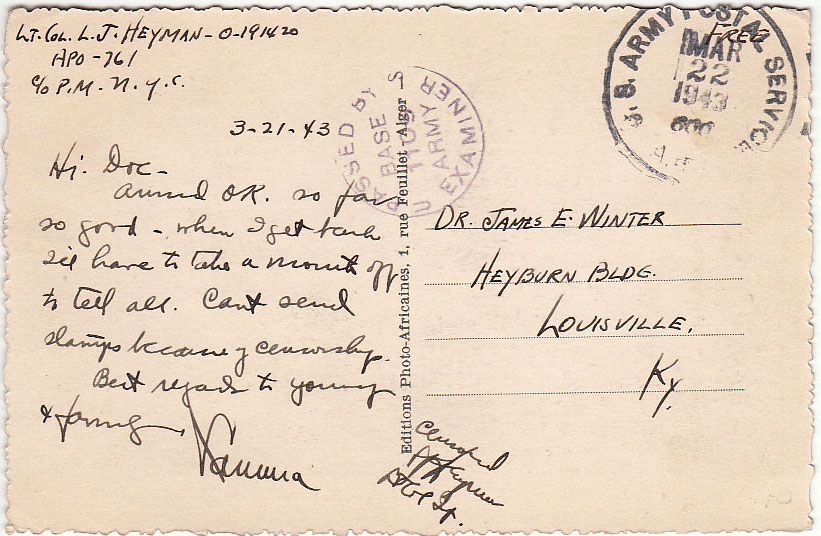 LT. COL. L. J. HEYMAN - O-191420
APO - 761
c/o P.M. N.Y.C.
3-21-43
Hi Doc -
Arrived OK. so far
so good - when I get back
I'll have to take a month off
to tell all. Cant send
stamps because of censorship.
Best regards to
& family
Editions Photo-Africaines. 1, rue Feuillet - Alger
PASSED BY
BASE
1109
U S ARMY
EXAMINER
U. S. ARMY POSTAL SERVICE
MAR
22
1943
FREE
DR. JAMES E. WINTER
HEYBURN BLDG.
LOUISVILLE,
Ky.
Censored
Heyman